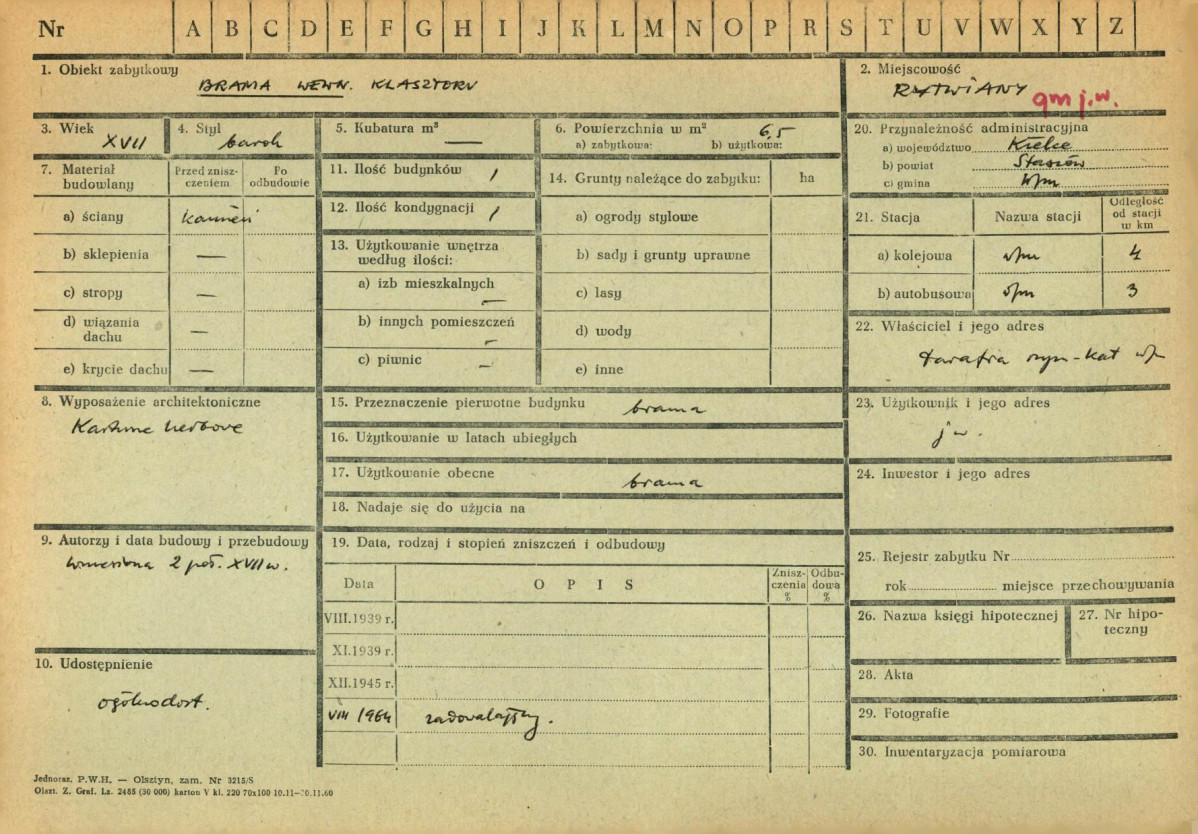 Nr A B C D E F G H I J K L M N O P R S T U V W X Y Z
1. Obiekt zabytkowy
BRAMA WEWN. KLASZTORU
2. Miejscowość
RYTWIANY
gm j.w.
3. Wiek
XVII
4. Styl
barok
5. Kubatura m³
—
6. Powierzchnia w m² 6,5
a) zabytkowa: b) użytkowa:
7. Materiał budowlany
Przed zniszczeniem
Po odbudowie
a) ściany kamień
b) sklepienia —
c) stropy —
d) wiązania dachu —
e) krycie dachu —
8. Wyposażenie architektoniczne
Kartusze herbowe
9. Autorzy i data budowy i przebudowy
wzniesiona 2 poł. XVII w.
10. Udostępnienie
ogólnodost.
11. Ilość budynków 1
12. Ilość kondygnacji 1
13. Użytkowanie wnętrza
według ilości:
a) izb mieszkalnych —
b) innych pomieszczeń —
c) piwnic —
14. Grunty należące do zabytku: ha
a) ogrody stylowe
b) sady i grunty uprawne
c) lasy
d) wody
e) inne
15. Przeznaczenie pierwotne budynku brama
16. Użytkowanie w latach ubiegłych
17. Użytkowanie obecne brama
18. Nadaje się do użycia na
19. Data, rodzaj i stopień zniszczeń i odbudowy
Data OPIS Zniszczenia % Odbudowa %
VIII.1939 r.
XI.1939 r.
XII.1945 r.
VIII 1964 zadowalający.
20. Przynależność administracyjna
a) województwo Kielce
b) powiat Staszów
c) gmina w/m
21. Stacja Nazwa stacji Odległość od stacji w km
a) kolejowa w/m 4
b) autobusowa w/m 3
22. Właściciel i jego adres
Parafia rzym-kat w/m
23. Użytkownik i jego adres
j w.
24. Inwestor i jego adres
25. Rejestr zabytku Nr
rok miejsce przechowywania
26. Nazwa księgi hipotecznej
27. Nr hipoteczny
28. Akta
29. Fotografie
30. Inwentaryzacja pomiarowa
Jednoraz. P.W.H. — Olsztyn, zam. Nr 3215/S
Olszt. Z. Graf. Lz. 2485 (30 000) karton V kl. 220 70x100 10.11—20.11.60